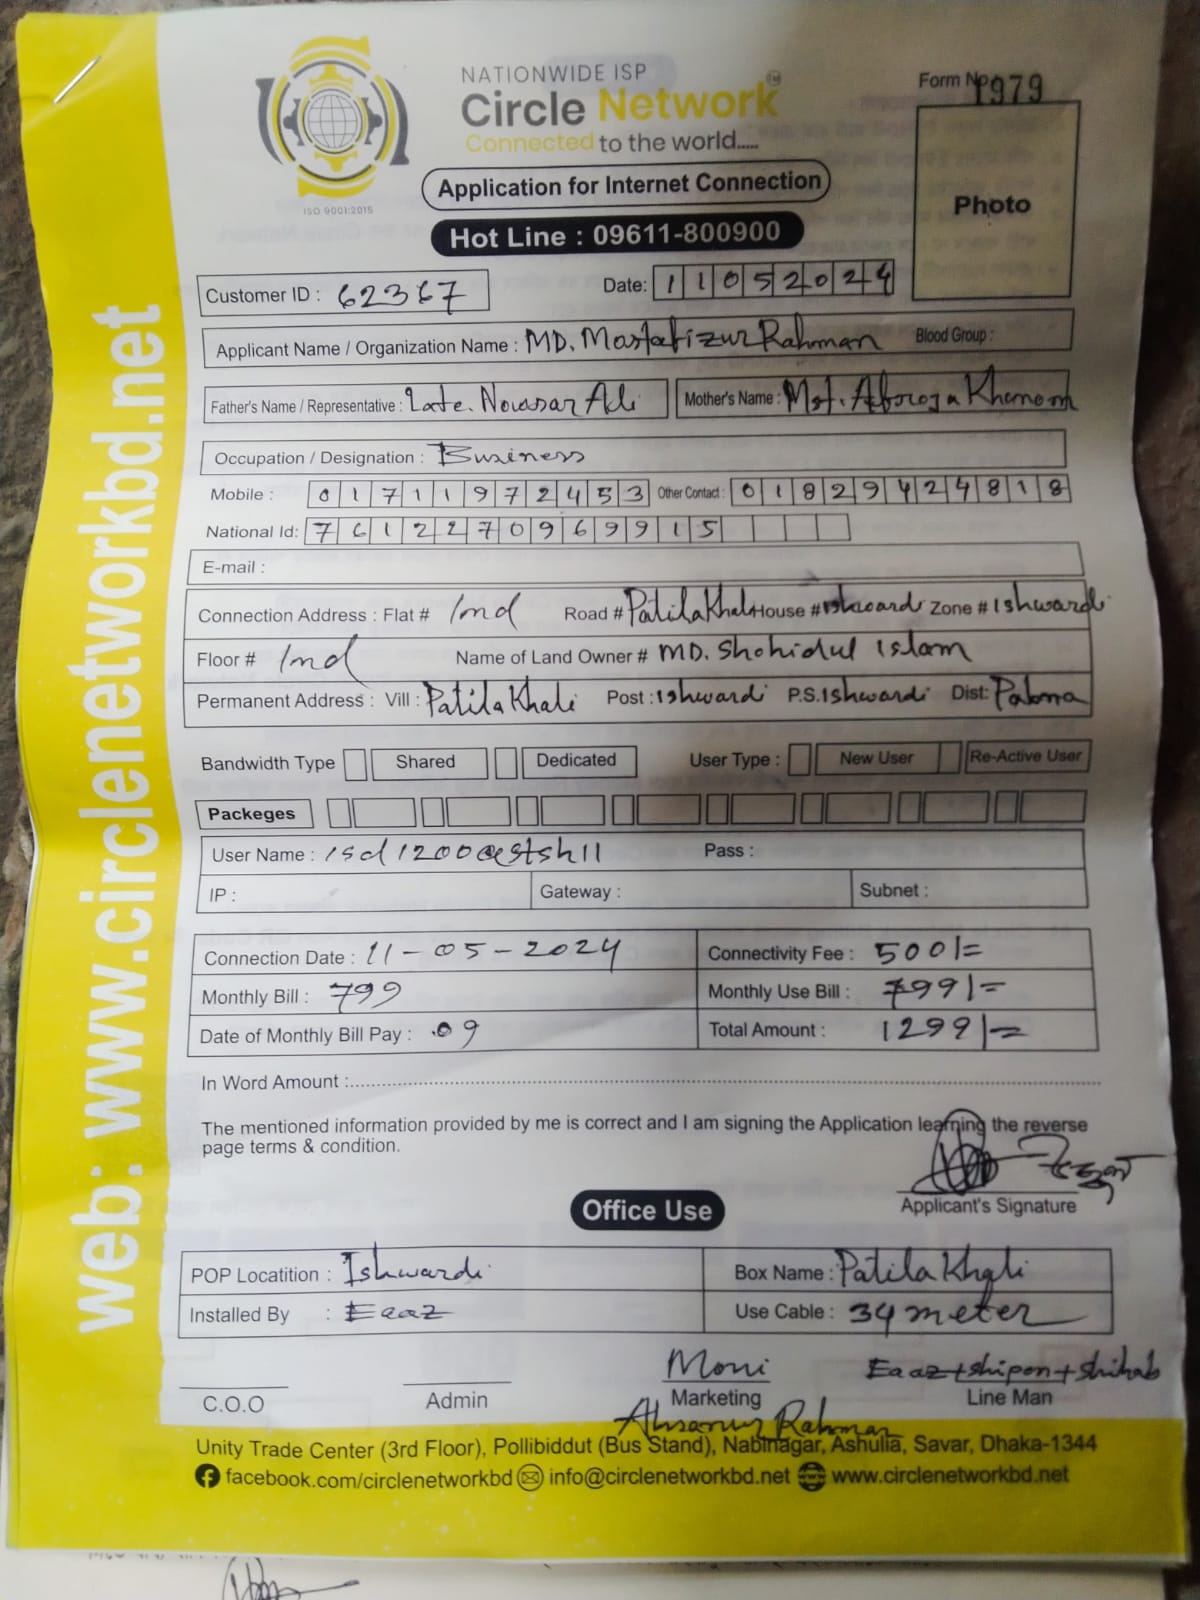 NATIONWIDE ISP
Circle Network
Connected to the world.....
ISO 9001:2015
Form No 1979
Photo
Application for Internet Connection
Hot Line : 09611-800900
Customer ID : 62367
Date: 11052024
Applicant Name / Organization Name : MD. Mostafizur Rahman Blood Group :
Father's Name / Representative : Late. Nowsar Ali Mother's Name : Mst. Afroja Khanom
Occupation / Designation : Business
Mobile : 01711972453 Other Contact : 01829424818
National Id: 7612270969915
E-mail :
Connection Address : Flat # Ind Road # PatilaKhali House # Ishwardi Zone # Ishwardi
Floor # Ind Name of Land Owner # MD. Shohidul Islam
Permanent Address : Vill : PatilaKhali Post : Ishwardi P.S. Ishwardi Dist: Pabna
Bandwidth Type Shared Dedicated User Type : New User Re-Active User
Packeges
User Name : isd1200@stsh11 Pass :
IP : Gateway : Subnet :
Connection Date : 11-05-2024 Connectivity Fee : 500/=
Monthly Bill : 799 Monthly Use Bill : 799/=
Date of Monthly Bill Pay : 09 Total Amount : 1299/=
In Word Amount :
The mentioned information provided by me is correct and I am signing the Application learning the reverse
page terms & condition.
Applicant's Signature
Office Use
POP Locatition : Ishwardi Box Name : PatilaKhali
Installed By : Eaaz Use Cable : 34 meter
Moni Eaaz+shipon+shihab
C.O.O Admin Marketing Line Man
Ahsanur Rahman
Unity Trade Center (3rd Floor), Pollibiddut (Bus Stand), Nabinagar, Ashulia, Savar, Dhaka-1344
facebook.com/circlenetworkbd info@circlenetworkbd.net www.circlenetworkbd.net
web: www.circlenetworkbd.net